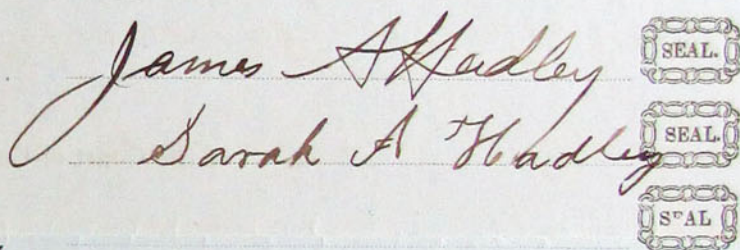 James A Hadley SEAL.
Sarah A Hadley SEAL.
SEAL